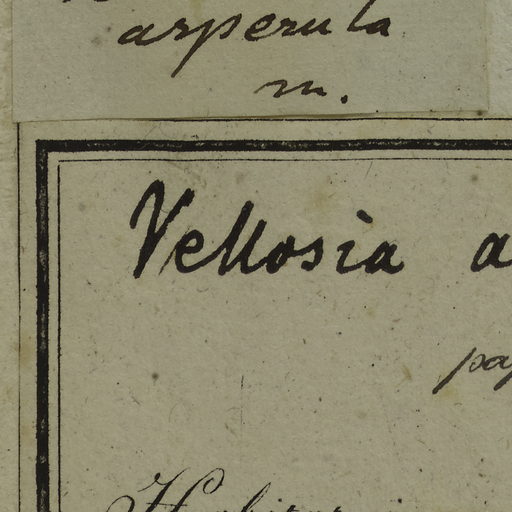 asperula
m.
Vellosia a
pap